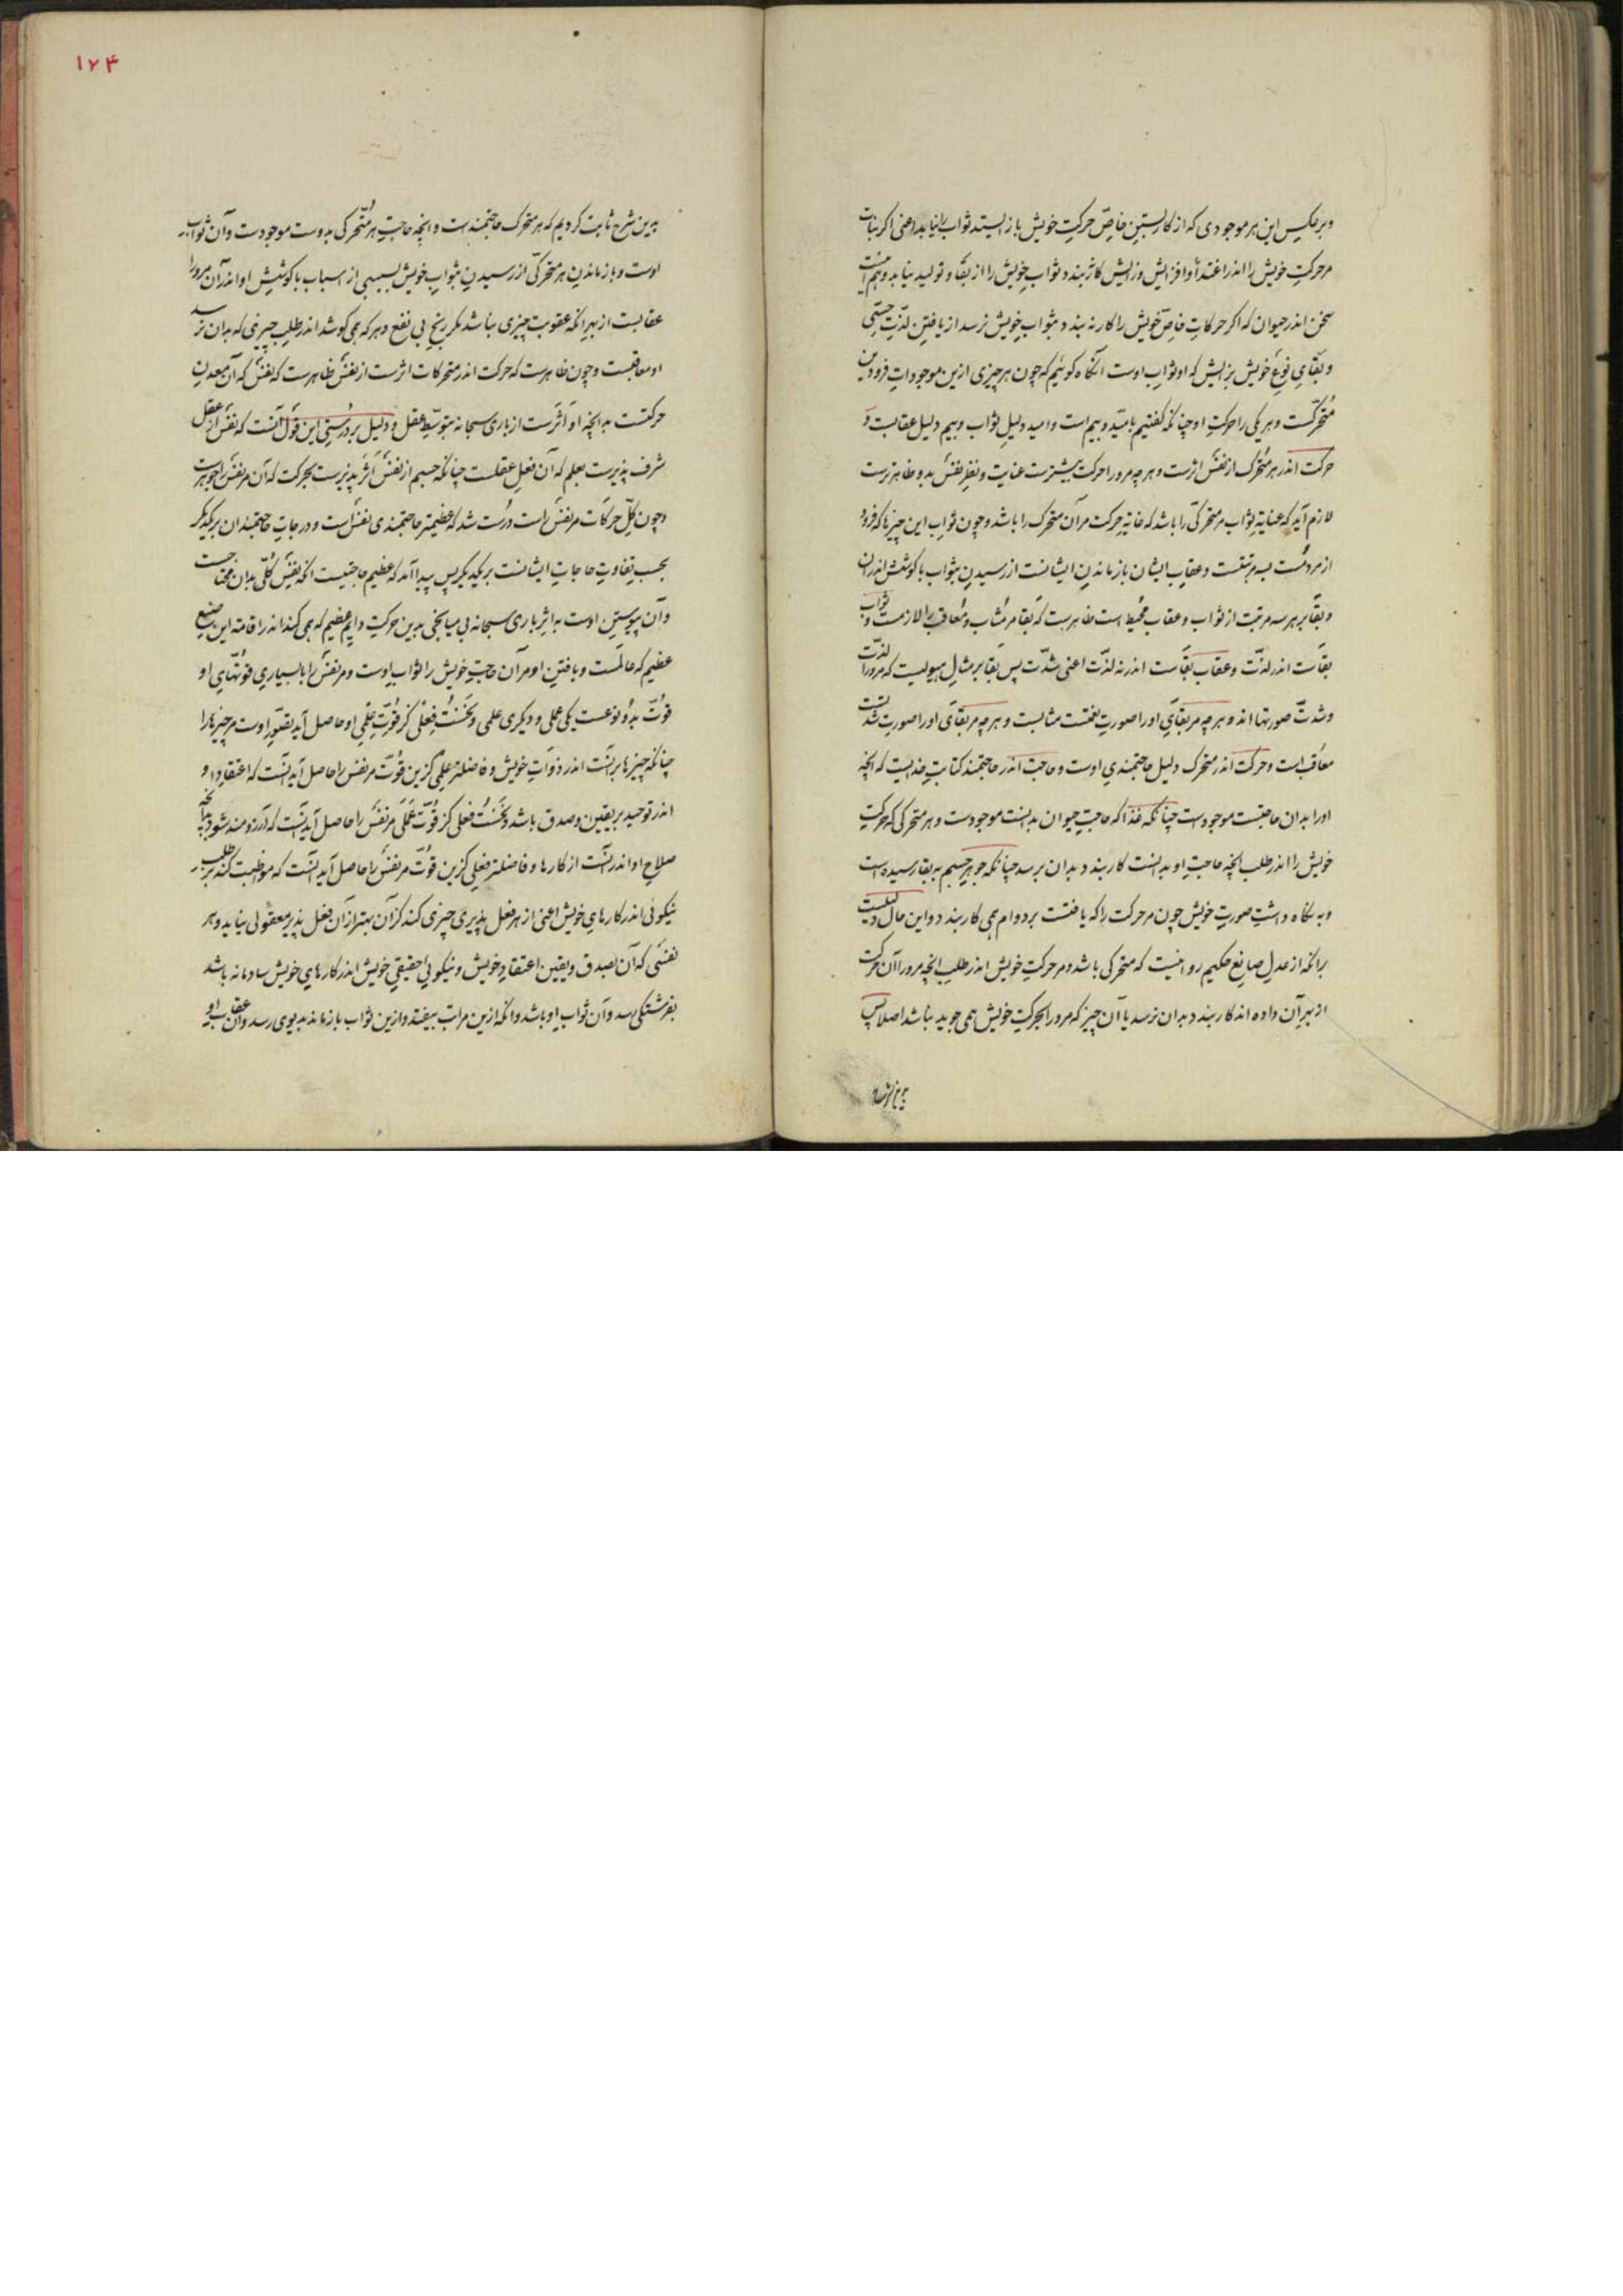 وبر عکس این هر موجودی که از کار بستن خاصّ حرکت خویش باز ایستد ثواب را نیابد اعنی اگر نبات
مر حرکت خویش را اندر اغتذا و افزایش و زایش کار نبندد بثواب خویش را از بقا و تولید نیابد و هم اینست
سخن اندر حیوان که اگر حرکات خاصّ خویش را کار نه بندد بثواب خویش نرسد از یافتن لذّت حسّی
و بقای نوع خویش بزایش که او ثواب اوست آنگاه گوئیم که چون هر چیزی ازین موجودات فرودین
متحرّکست و هر یکی را حرکت او چنانکه گفتیم بامید و بیم است و امید دلیل ثواب و بیم دلیل عقابست و
حرکت اندر هر متحرّک از نفس اثرست و هر چه مرورا حرکت بیشترست عنایت و نظر نفس بدو ظاهرترست
لازم آید که عنایة ثواب مر متحرّکی را باشد که غایة حرکت مر آن متحرّک را باشد و چون ثواب این چیزها که فرود
از مردمست بسه مرتبتست و عقاب ایشان بازماندن ایشانست از رسیدن بثواب با کوشش اندران
و بقا بر هر سه مرتبت از ثواب و عقاب محیط است ظاهرست که بقا مر مثاب و معاقب را لازمست و ثواب
بقاست اندر لذّت و عقاب بقاست اندر نه لذّت اعنی شدّت پس بقا بر مثال هیولیست که مرورا لذّت
و شدّت صورتها اند و هر چه مر بقای او را صورت نعمتست مثابست و هر چه مر بقای او را صورت شدّتست
معاقب است و حرکت اندر متحرک دلیل حاجتمندی اوست و حاجت اندر حاجتمند کتابت خدایست که آنچه
او را بدان حاجتست موجودست چنانکه غذا که حاجت حیوان بدانست موجودست و هر متحرکی که حرکت
خویش را اندر طلب آنچه حاجت او بدانست کار بندد بدان برسد چنانکه جوهر جسم به بقا رسیده است
و به نگاه داشت صورت خویش چون مر حرکت را که یافتست بر دوام همی کار بندد و این حال دلیلست
بر آنکه از عدل صانع حکیم روا نیست که متحرکی باشد و مر حرکت خویش اندر طلب آنچه مرورا آن حرکت
از بهر آن داده اند کار بندد بدان نرسد یا آن چیز که مرورا بحرکت خویش همی جوید نباشد اصلا پس
۱۷۴
بدین شرح ثابت کردیم که هر متحرک حاجتمندست و آنچه حاجت هر متحرکی بدوست موجودست و آن ثواب
اوست و بازماندن هر متحرکی از رسیدن بثواب خویش بسببی از اسباب با کوشش او اندر آن مرورا
عقابست از بهر آنکه عقوبت چیزی نباشد مگر رنج بی نفع و هر که همی کوشد اندر طلب چیزی که بدان نرسد
او معاقبست و چون ظاهرست که حرکت اندر متحرکات اثرست از نفس ظاهرست که نفس که آن معدن
حرکتست بدانچه او اثرست از باری سبحانه بتوسّط عقل و دلیل بر درستی این قول آنست که نفس از عقل
شرف پذیرست بعلم که آن فعل عقلست چنانکه جسم از نفس اثر پذیرست بحرکت که آن مر نفس را جوهرست
و چون کلّ حرکات مر نفس راست درست شد که عظیمتر حاجتمندی نفس است و درجات حاجتمندان بر یکدیگر
بحسب تفاوت حاجات ایشانست بر یکدیگر پس پیدا آمد که عظیم حاجتیست آنکه نفس کلّی بدان محتاجست
و آن پیوستن اوست به اثر باری سبحانه بی میانجی بدین حرکت دایم عظیم که همی کند اندر اقامة این صنع
عظیم که عالمست و یافتن او مر آن حاجت خویش را ثواب اوست و مر نفس را با بسیاری قوتهای او
قوّت بدو نوعست یکی عملی و دیگری علمی و نخست فعلی کز قوّت علمی او حاصل آید تصوّر اوست مر چیزها را
چنانکه چیزها برانست اندر ذوات خویش و فاضلتر علمی کزین قوّت مر نفس را حاصل آید آنست که اعتقاد او
اندر توحید بر یقین و صدق باشد و نخست فعلی کز قوّت عملی مر نفس را حاصل آید آنست که آرزومند شود بدانچه
صلاح او اندر آنست از کارها و فاضلتر فعلی کزین قوّت مر نفس را حاصل آید آنست که مواظبت کند بر طلب
نیکوئی اندر کارهای خویش اعنی از هر فعل پذیری چیزی کند کز آن بهتر از آن فعل پذیر معقولی نیاید و هر
نفسی که آن بصدق و یقین اعتقاد خویش و نیکویی حقیقی خویش اندر کارهای خویش سادمانه باشد
بفرشتگی رسد و آن ثواب او باشد و آنکه ازین مراتب بیفتد و ازین ثواب بازماند بدیوی رسد و آن عقاب او